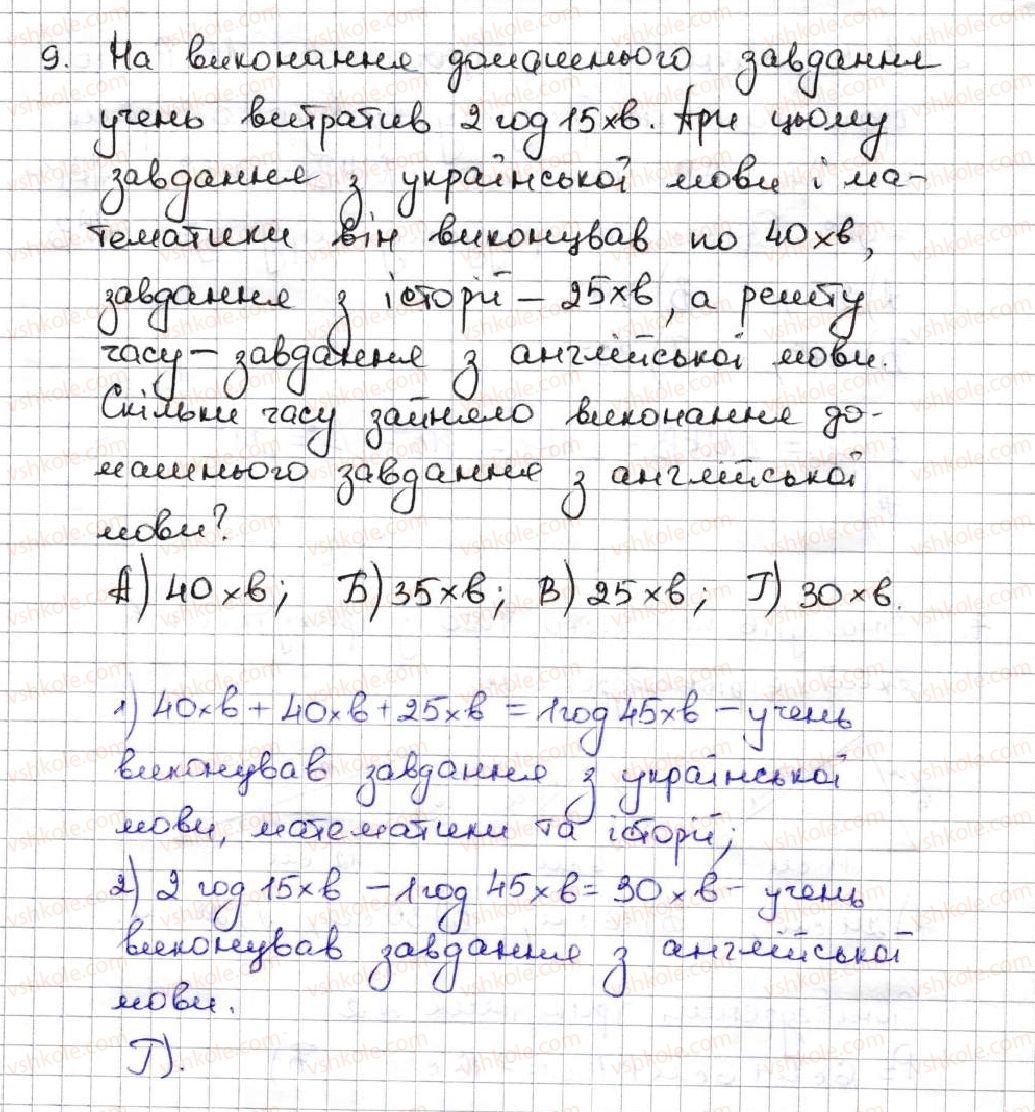 9. На виконання домашнього завдання
учень витратив 2 год 15 хв. При цьому
завдання з української мови і ма-
тематики він виконував по 40 хв,
завдання з історії – 25 хв, а решту
часу – завдання з англійської мови.
Скільки часу зайняло виконання до-
машнього завдання з англійської
мови?
А) 40 хв; Б) 35 хв; В) 25 хв; Г) 30 хв.
1) 40 хв + 40 хв + 25 хв = 1 год 45 хв – учень
виконував завдання з української
мови, математики та історії;
2) 2 год 15 хв – 1 год 45 хв = 30 хв – учень
виконував завдання з англійської
мови.
Г).
vshkole.com